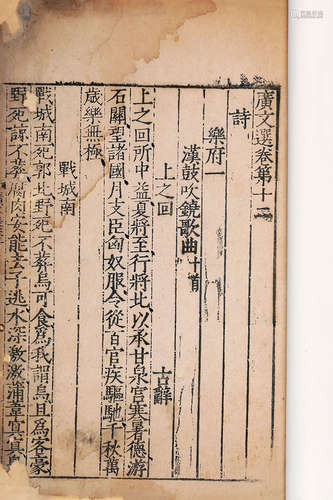 廣文選卷第十二
詩
樂府一
漢鼓吹鐃歌曲十首
上之回 古辭
上之回所中益夏將至行將北以承甘泉宮寒暑德游
石關望諸國月支臣匈奴服令從百官疾驅馳千秋萬
歲樂無極
戰城南
戰城南死郭北野死不葬烏可食為我謂烏且為客豪
野死諒不葬腐肉安能去子逃水深激激蒲葦冥冥